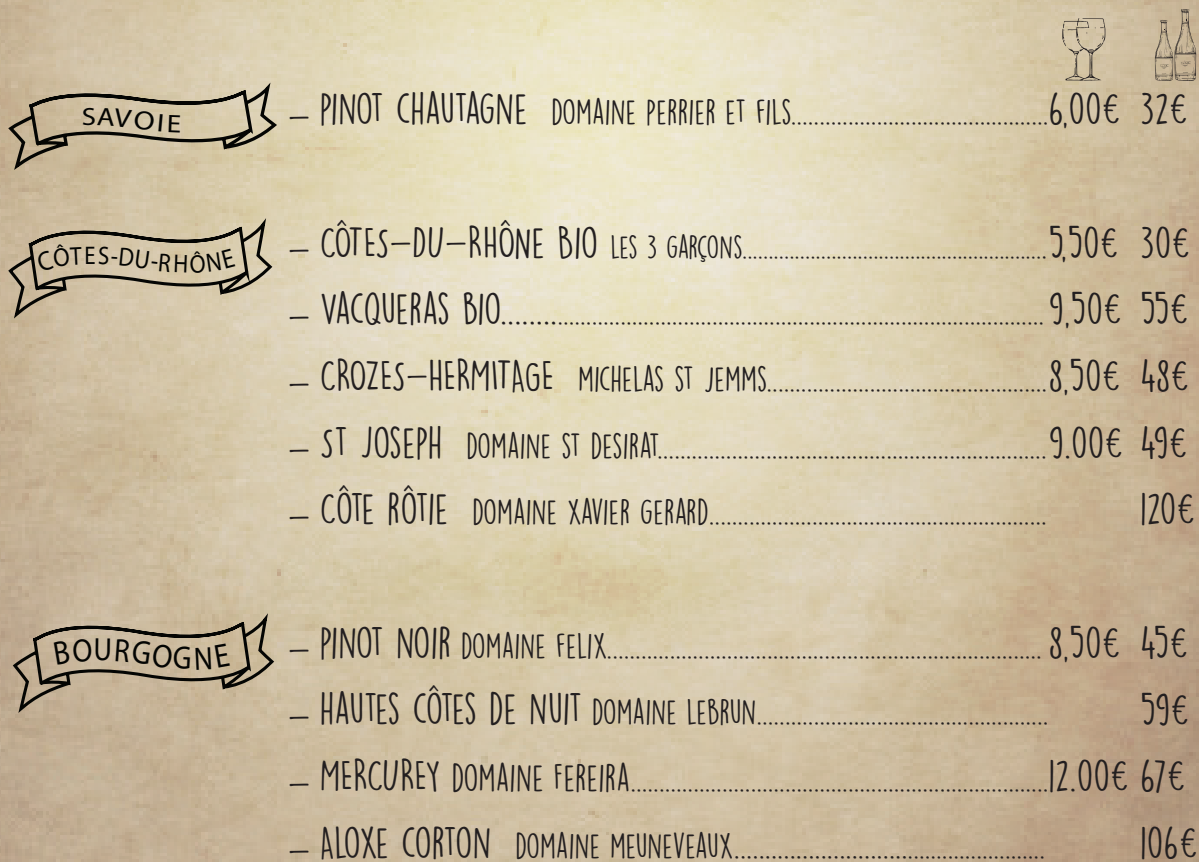 SAVOIE
– PINOT CHAUTAGNE DOMAINE PERRIER ET FILS..........6,00€ 32€
CÔTES-DU-RHÔNE
– CÔTES-DU-RHÔNE BIO LES 3 GARÇONS..........5,50€ 30€
– VACQUERAS BIO..........9,50€ 55€
– CROZES-HERMITAGE MICHELAS ST JEMMS..........8,50€ 48€
– ST JOSEPH DOMAINE ST DESIRAT..........9.00€ 49€
– CÔTE RÔTIE DOMAINE XAVIER GERARD..........120€
BOURGOGNE
– PINOT NOIR DOMAINE FELIX..........8,50€ 45€
– HAUTES CÔTES DE NUIT DOMAINE LEBRUN..........59€
– MERCUREY DOMAINE FEREIRA..........12.00€ 67€
– ALOXE CORTON DOMAINE MEUNEVEAUX..........106€